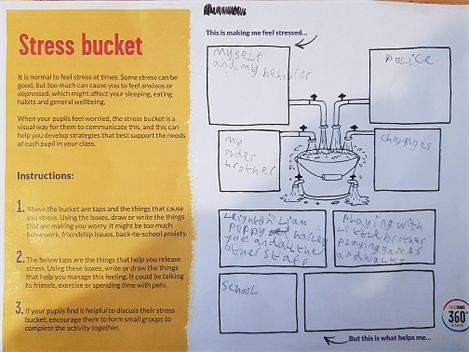 Stress bucket
It is normal to feel stress at times. Some stress can be
good, but too much can cause you to feel anxious or
depressed, which might affect your sleeping, eating
habits and general wellbeing.
When your pupils feel worried, the stress bucket is a
visual way for them to communicate this, and this can
help you develop strategies that best support the needs
of each pupil in your class.
Instructions:
1. Above the bucket are taps and the things that cause
you stress. Using the boxes, draw or write the things
that are making you worry. It might be too much
homework, friendship issues, back-to-school anxiety.
2. The below taps are the things that help you release
stress. Using these boxes, write or draw the things
that help you manage this feeling. It could be talking
to friends, exercise or spending time with pets.
3. If your pupils find it helpful to discuss their stress
bucket, encourage them to form small groups to
complete the activity together.
This is making me feel stressed...
myself
and my behavior
police
my
order
brother
changes
Leighton Liam
poppy harley
Joe and all the
other staff
Playing with
little brother
playing games
and walks
SCHOOL
360°
But this is what helps me...